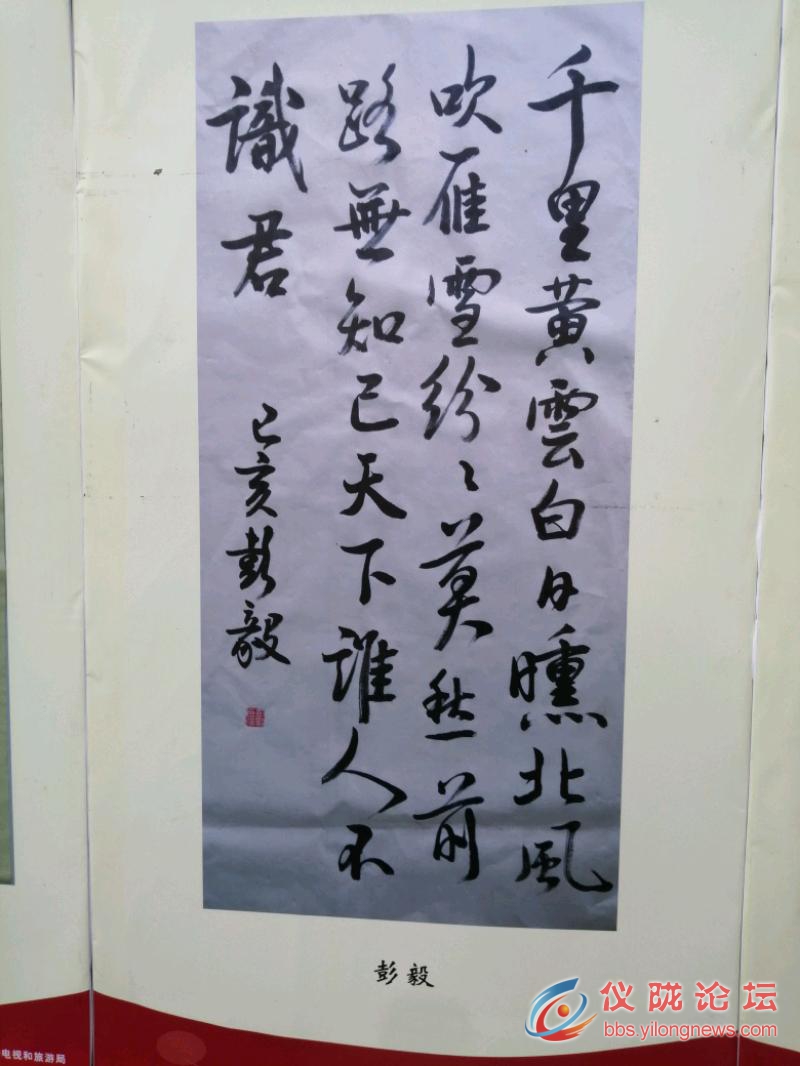 千里黄雲白日曛北風
吹雁雪紛〻莫愁前
路無知己天下誰人不
識君
己亥彭毅
彭毅
电视和旅游局
仪陇论坛
bbs.yilongnews.com